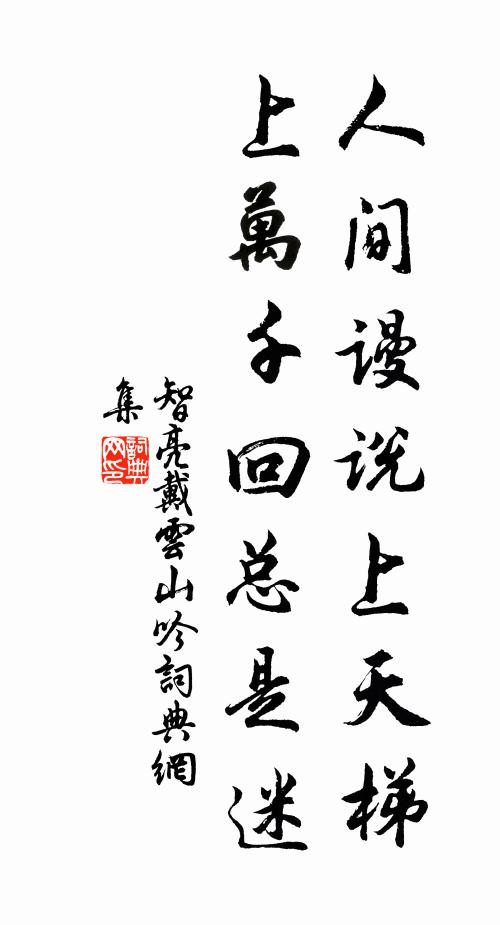 人间谩说上天梯
上萬千回总是迷
智亮戴雲山吟詞典網
集
詞典
网印